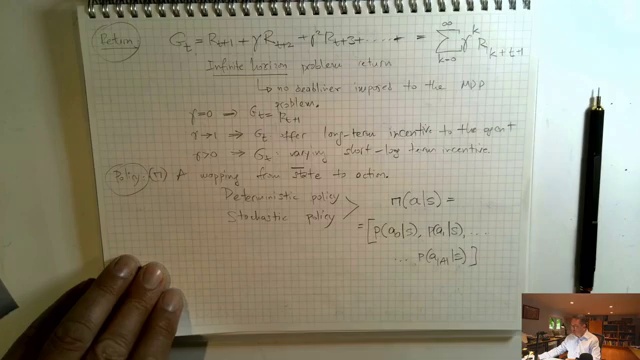 Return: G_t = R_{t+1} + γ R_{t+2} + γ² R_{t+3} + ..... + = ∑_{k=0}^{∞} γ^k R_{k+t+1}
Infinite horizon problem return
↳ no deadline imposed to the MDP
problem.
γ=0 ⟹ G_t = R_{t+1}
γ→1 ⟹ G_t offer long-term incentive to the agent
γ>0 ⟹ G_t varying short-log term incentive
Policy: (π) A mapping from state to action.
Deterministic policy
Stochastic policy
π(a|s) =
= [p(a_0|s), p(a_1|s), ....
... p(a_{|A|}|s)]